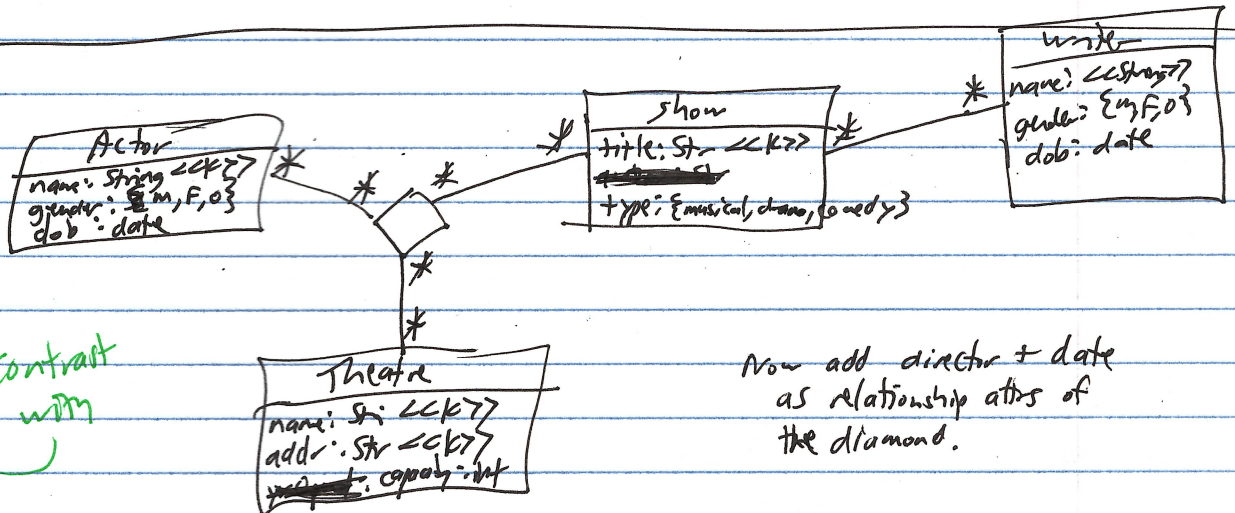 Actor
name: String <<k>>
gender: {m, F, O}
dob: date
*
*
*
*
show
title: Str <<k>>
type: {musical, drama, comedy}
*
*
writer
name: <<String>>
gender: {m, F, O}
dob: date
*
*
Theatre
name: Str <<k>>
addr: Str <<k>>
: capacity: int
Contrast
with
Now add director + date
as relationship attrs of
the diamond.